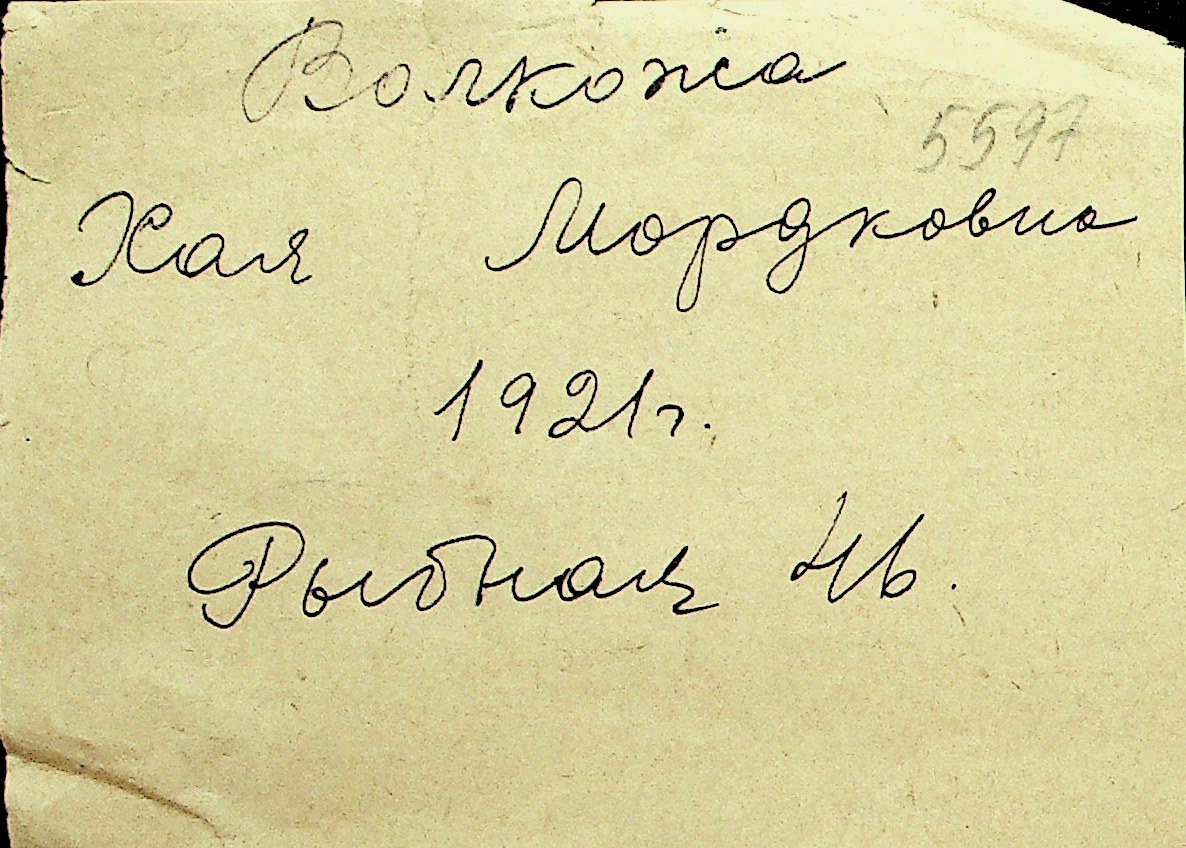 Волкожа
5597
Хая Мордковна
1921г.
Рыбная 4б.